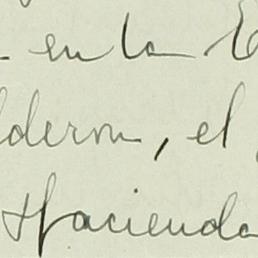 en la
lderon, el
Hacienda